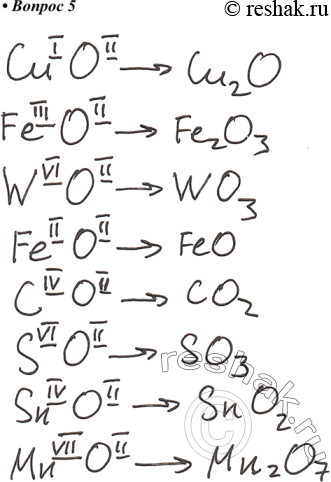 • Вопрос 5
© reshak.ru
Cu^I O^II → Cu₂O
Fe^III O^II → Fe₂O₃
W^VI O^II → WO₃
Fe^II O^II → FeO
C^IV O^II → CO₂
S^VI O^II → SO₃
Sn^IV O^II → SnO₂
Mn^VII O^II → Mn₂O₇
reshak.ru
©